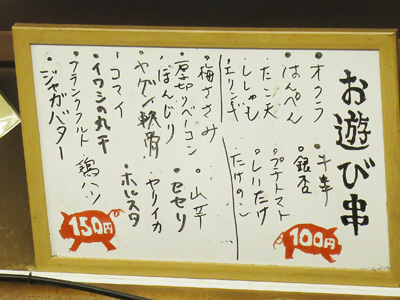 お遊び串
・オクラ
・はんぺん ・銀杏
・たこ天 ・プチトマト
・ししゃも ・しいたけ
・エリンギ たけのこ
100円
・梅ささみ ・山芋
・厚切りベーコン ・セセリ
・ぼんじり
・ヤゲン軟骨 ・ヤリイカ
・コマイ ・ホルスタ
・イワシの丸干
・フランクフルト 鶏ハツ
・ジャガバター
150円